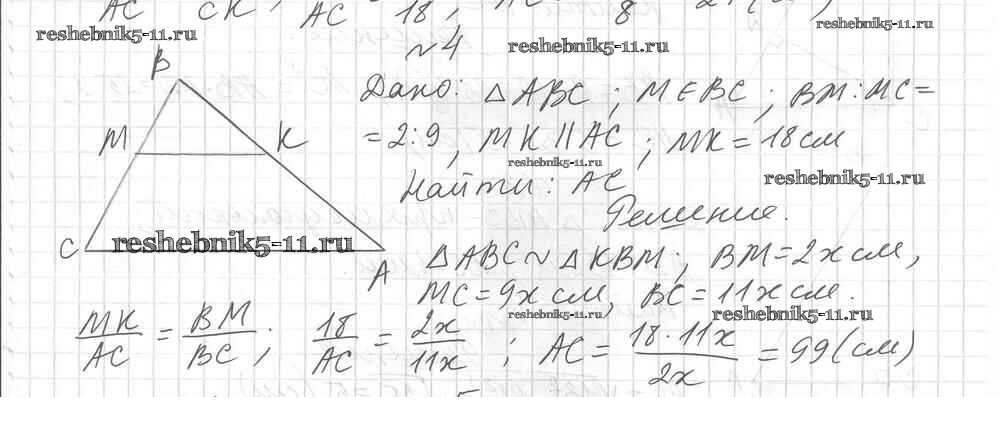 AC CK ; AC 18 , 8
reshebnik5-11.ru
reshebnik5-11.ru
№4
B
M K
C A
reshebnik5-11.ru
Дано: △ABC ; M∈BC ; BM:MC=
=2:9, MK∥AC ; MK=18см
reshebnik5-11.ru
reshebnik5-11.ru
Найти: AC
Решение.
△ABC ~ △KBM ; BM=2x см,
MC=9x см, BC=11x см.
reshebnik5-11.ru
reshebnik5-11.ru
MK/AC = BM/BC ; 18/AC = 2x/11x ; AC = 18·11x/2x = 99(см)